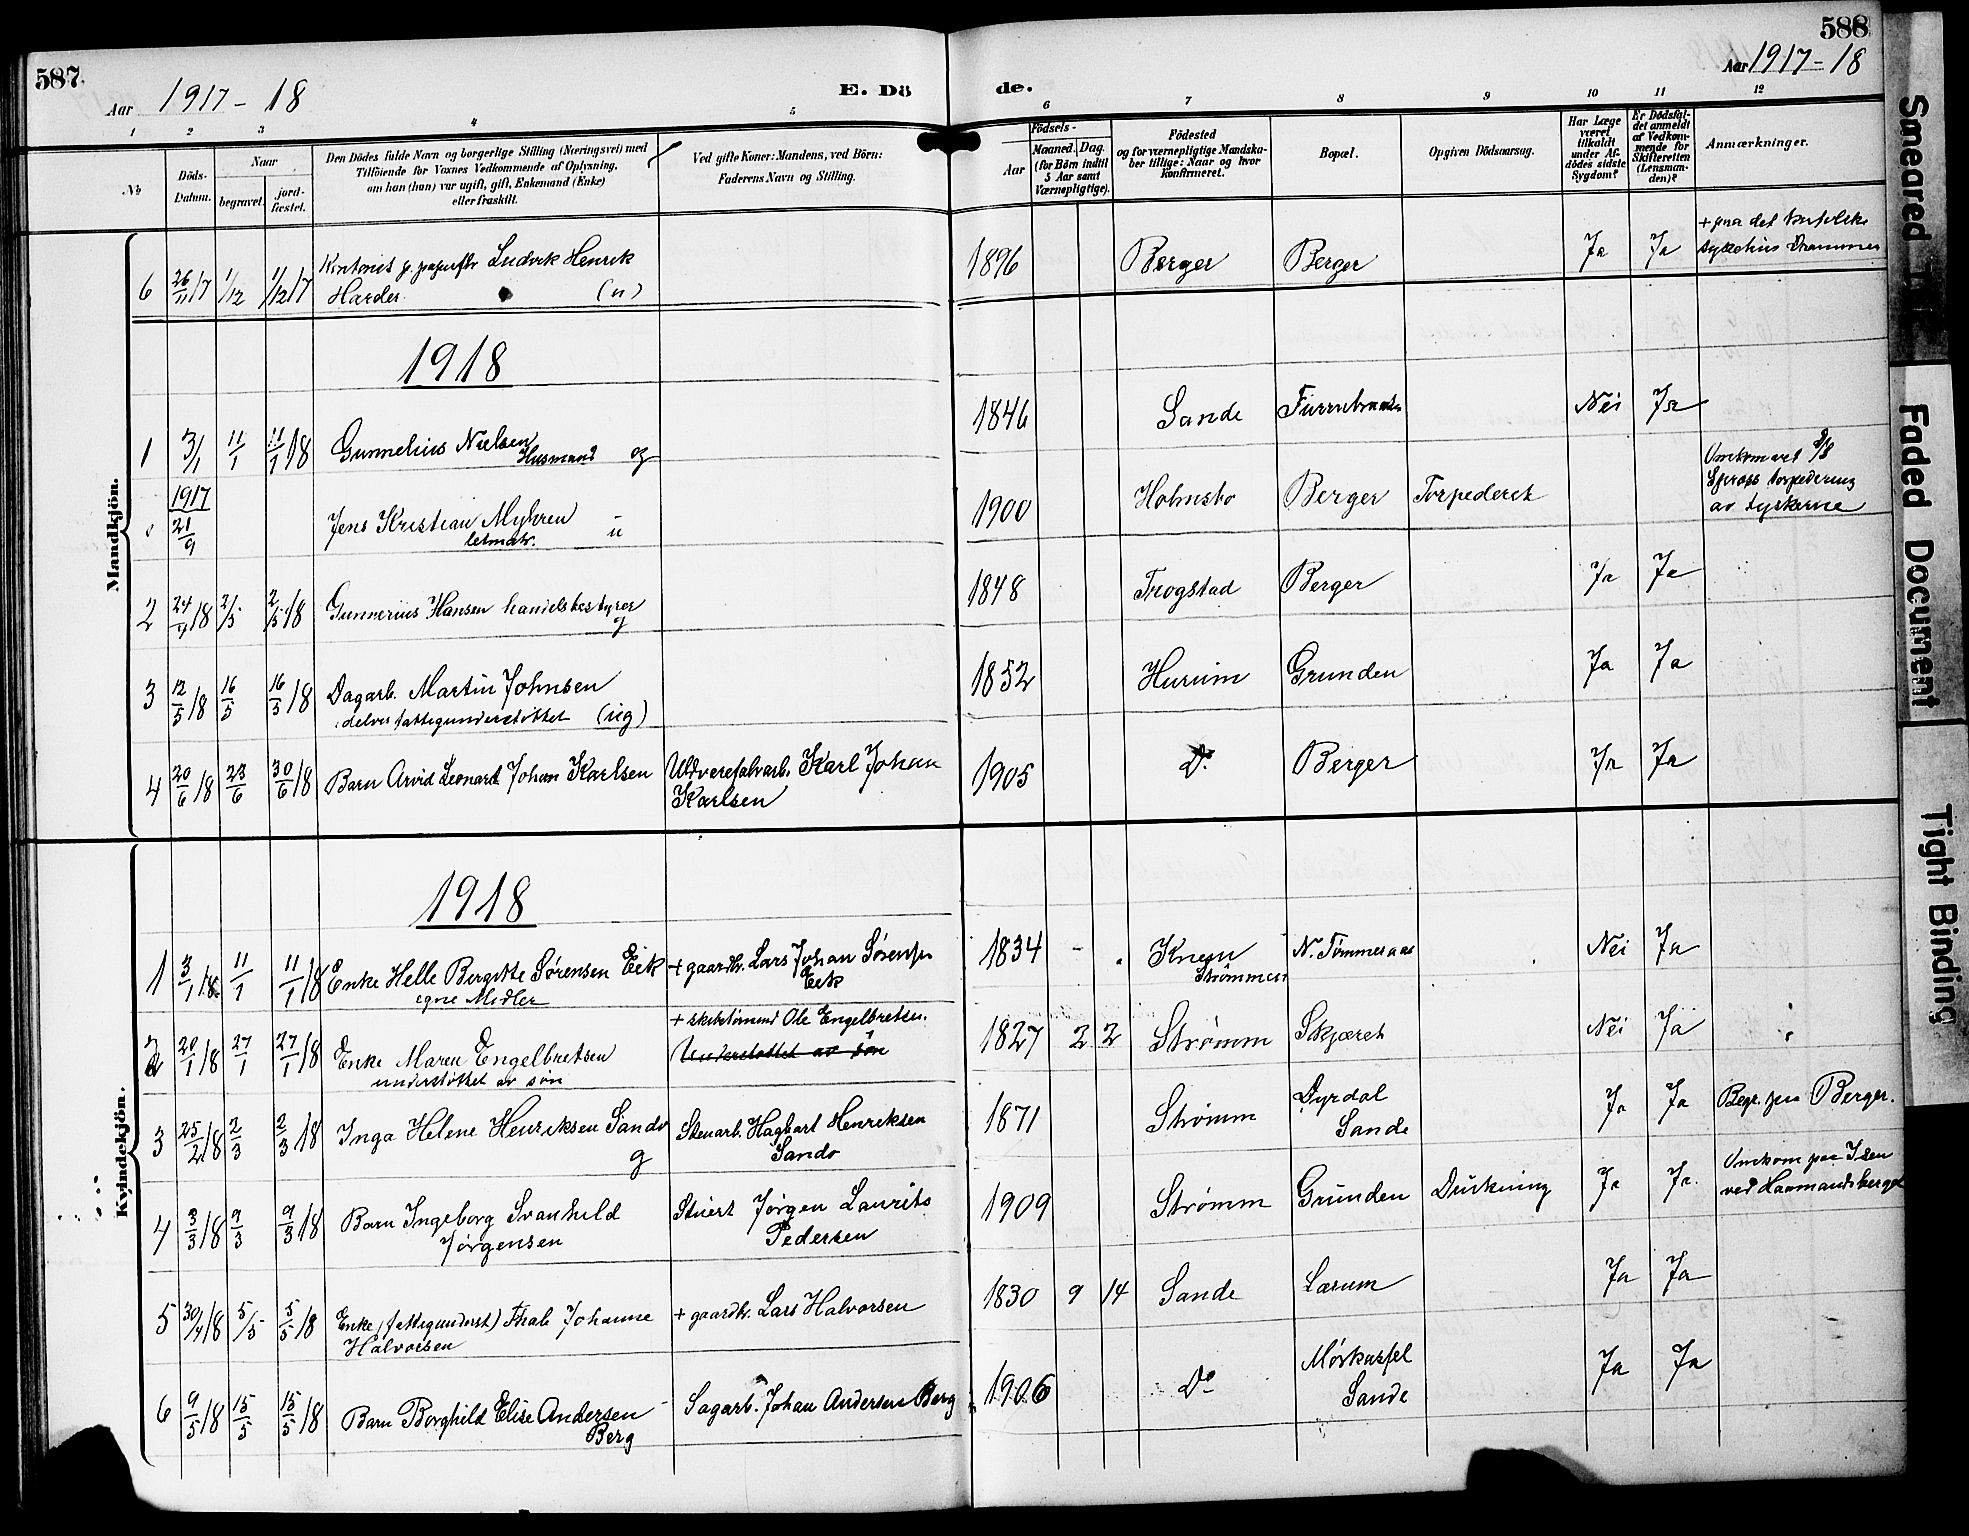 587.
Aar 1917-18
E. Dö
de.
588
Aar 1917-18
1 2 3 4 5 6 7 8 9 10 11 12
No
Döds-
Datum.
Naar
begravet.
jord-
fæstet.
Den Dödes fulde Navn og borgerlige Stilling (Næringsvei) med
Tilföiende for Voxnes Vedkommende af Oplysning,
om han (hun) var ugift, gift, Enkemand (Enke)
eller fraskilt.
Ved gifte Koner: Mandens, ved Börn:
Faderens Navn og Stilling.
Födsels-
Aar
Maaned. Dag.
(for Börn indtil
5 Aar samt
Værnepligtige).
Födested
og for værnepligtige Mandska-
ber tillige: Naar og hvor
konfirmeret.
Bopæl.
Opgiven Dödsaarsag.
Har Læge
været
tilkaldt
under Af-
dödes sidste
Sygdom?
Er Dödsfal-
det anmeldt
af Vedkom-
mende for
Skifteretten
(Lensman-
den)?
Anmærkninger.
Mandkjön.
6 26/11 17 1/12 1/12 17 Ludvik Henrik
Harder (u)
1896 Berger Berger Ja Ja + paa det
sykehus Drammen
1918
1 3/1 11/1 11/1 18 Gunnelius Nielsen
Husmand g
1846 Sande Nei Ja
1917
21/9 Jens Kristian Myhren
letmatr. u
1900 Holmsbo Berger Torpederet
Omkom ved S/S
torpedering
av tyskerne
2 24/4 18 2/5 2/5 18 Gunnerius Hansen handelsbestyrer
g
1848 Trøgstad Berger Ja Ja
3 12/5 18 16/5 16/5 18 Dagarb. Martin Johnsen
delvis fattigunderstöttet (ug)
1852 Hurum Grunden Ja Ja
4 20/6 18 23/6 30/6 18 Barn Arvid Leonard Johan Karlsen
Uldvarefabarb. Karl Johan
Karlsen
1905 Do Berger Ja Ja
Kvindekjön.
1918
1 3/1 18 11/1 11/1 18 Enke Helle Bergitte Sørensen Eik
egne Midler
+ gaardbr. Lars Johan Sørensen
Eik
1834 - . Knem
Strømmen
N. Tømmeraas Nei Ja
2 20/1 18 27/1 27/1 18 Enke Maren Engelbretsen
understøttet av søn
+ skibstømmd Ole Engelbretsen.
Understøttet av søn
1827 2 2 Strømm Skjæret Nei Ja
3 25/2 18 2/3 2/3 18 Inga Helene Henriksen Sando
g
Stenarb. Hagbart Henriksen
Sando
1871 Strømm Dyrdal
Sande
Ja Ja Begr. paa Berger.
4 3/3 18 9/3 9/3 18 Barn Ingeborg Svanhild
Jørgensen
Stuert Jørgen Laurits
Pedersen
1909 Strømm Grunden Drukning Ja Ja. Omkom paa Isen
ved Haamandsberget
5 30/4 18 5/5 5/5 18 Enke (fattigunderst) Johanne
Halvorsen
+ gaardbr. Lars Halvorsen
1830 9 14 Sande Lærum Ja Ja
6 9/5 18 15/5 15/5 18 Barn Borghild Elise Andersen
Berg
Sagarb. Johan Andersen Berg
1906 Do Mørkassel
Sande
Ja Ja
Smeared
Faded Document
Tight Binding